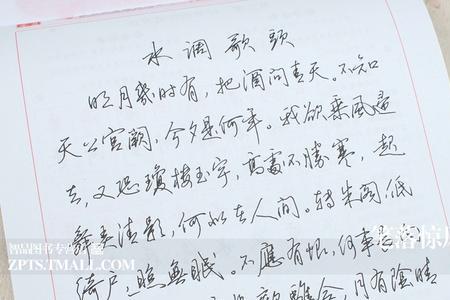 水调歌頭
明月幾时有，把酒问青天。不知
天公宫闕，今夕是何年。我欲乘风归
去，又恐瓊楼玉宇，高處不勝寒，起
舞弄清影，何似在人间。转朱阁，低
绮户，照無眠。不應有恨，何事
離合，月有陰晴
智品图书专营店
ZPTS.TMALL.COM
笔落惊风